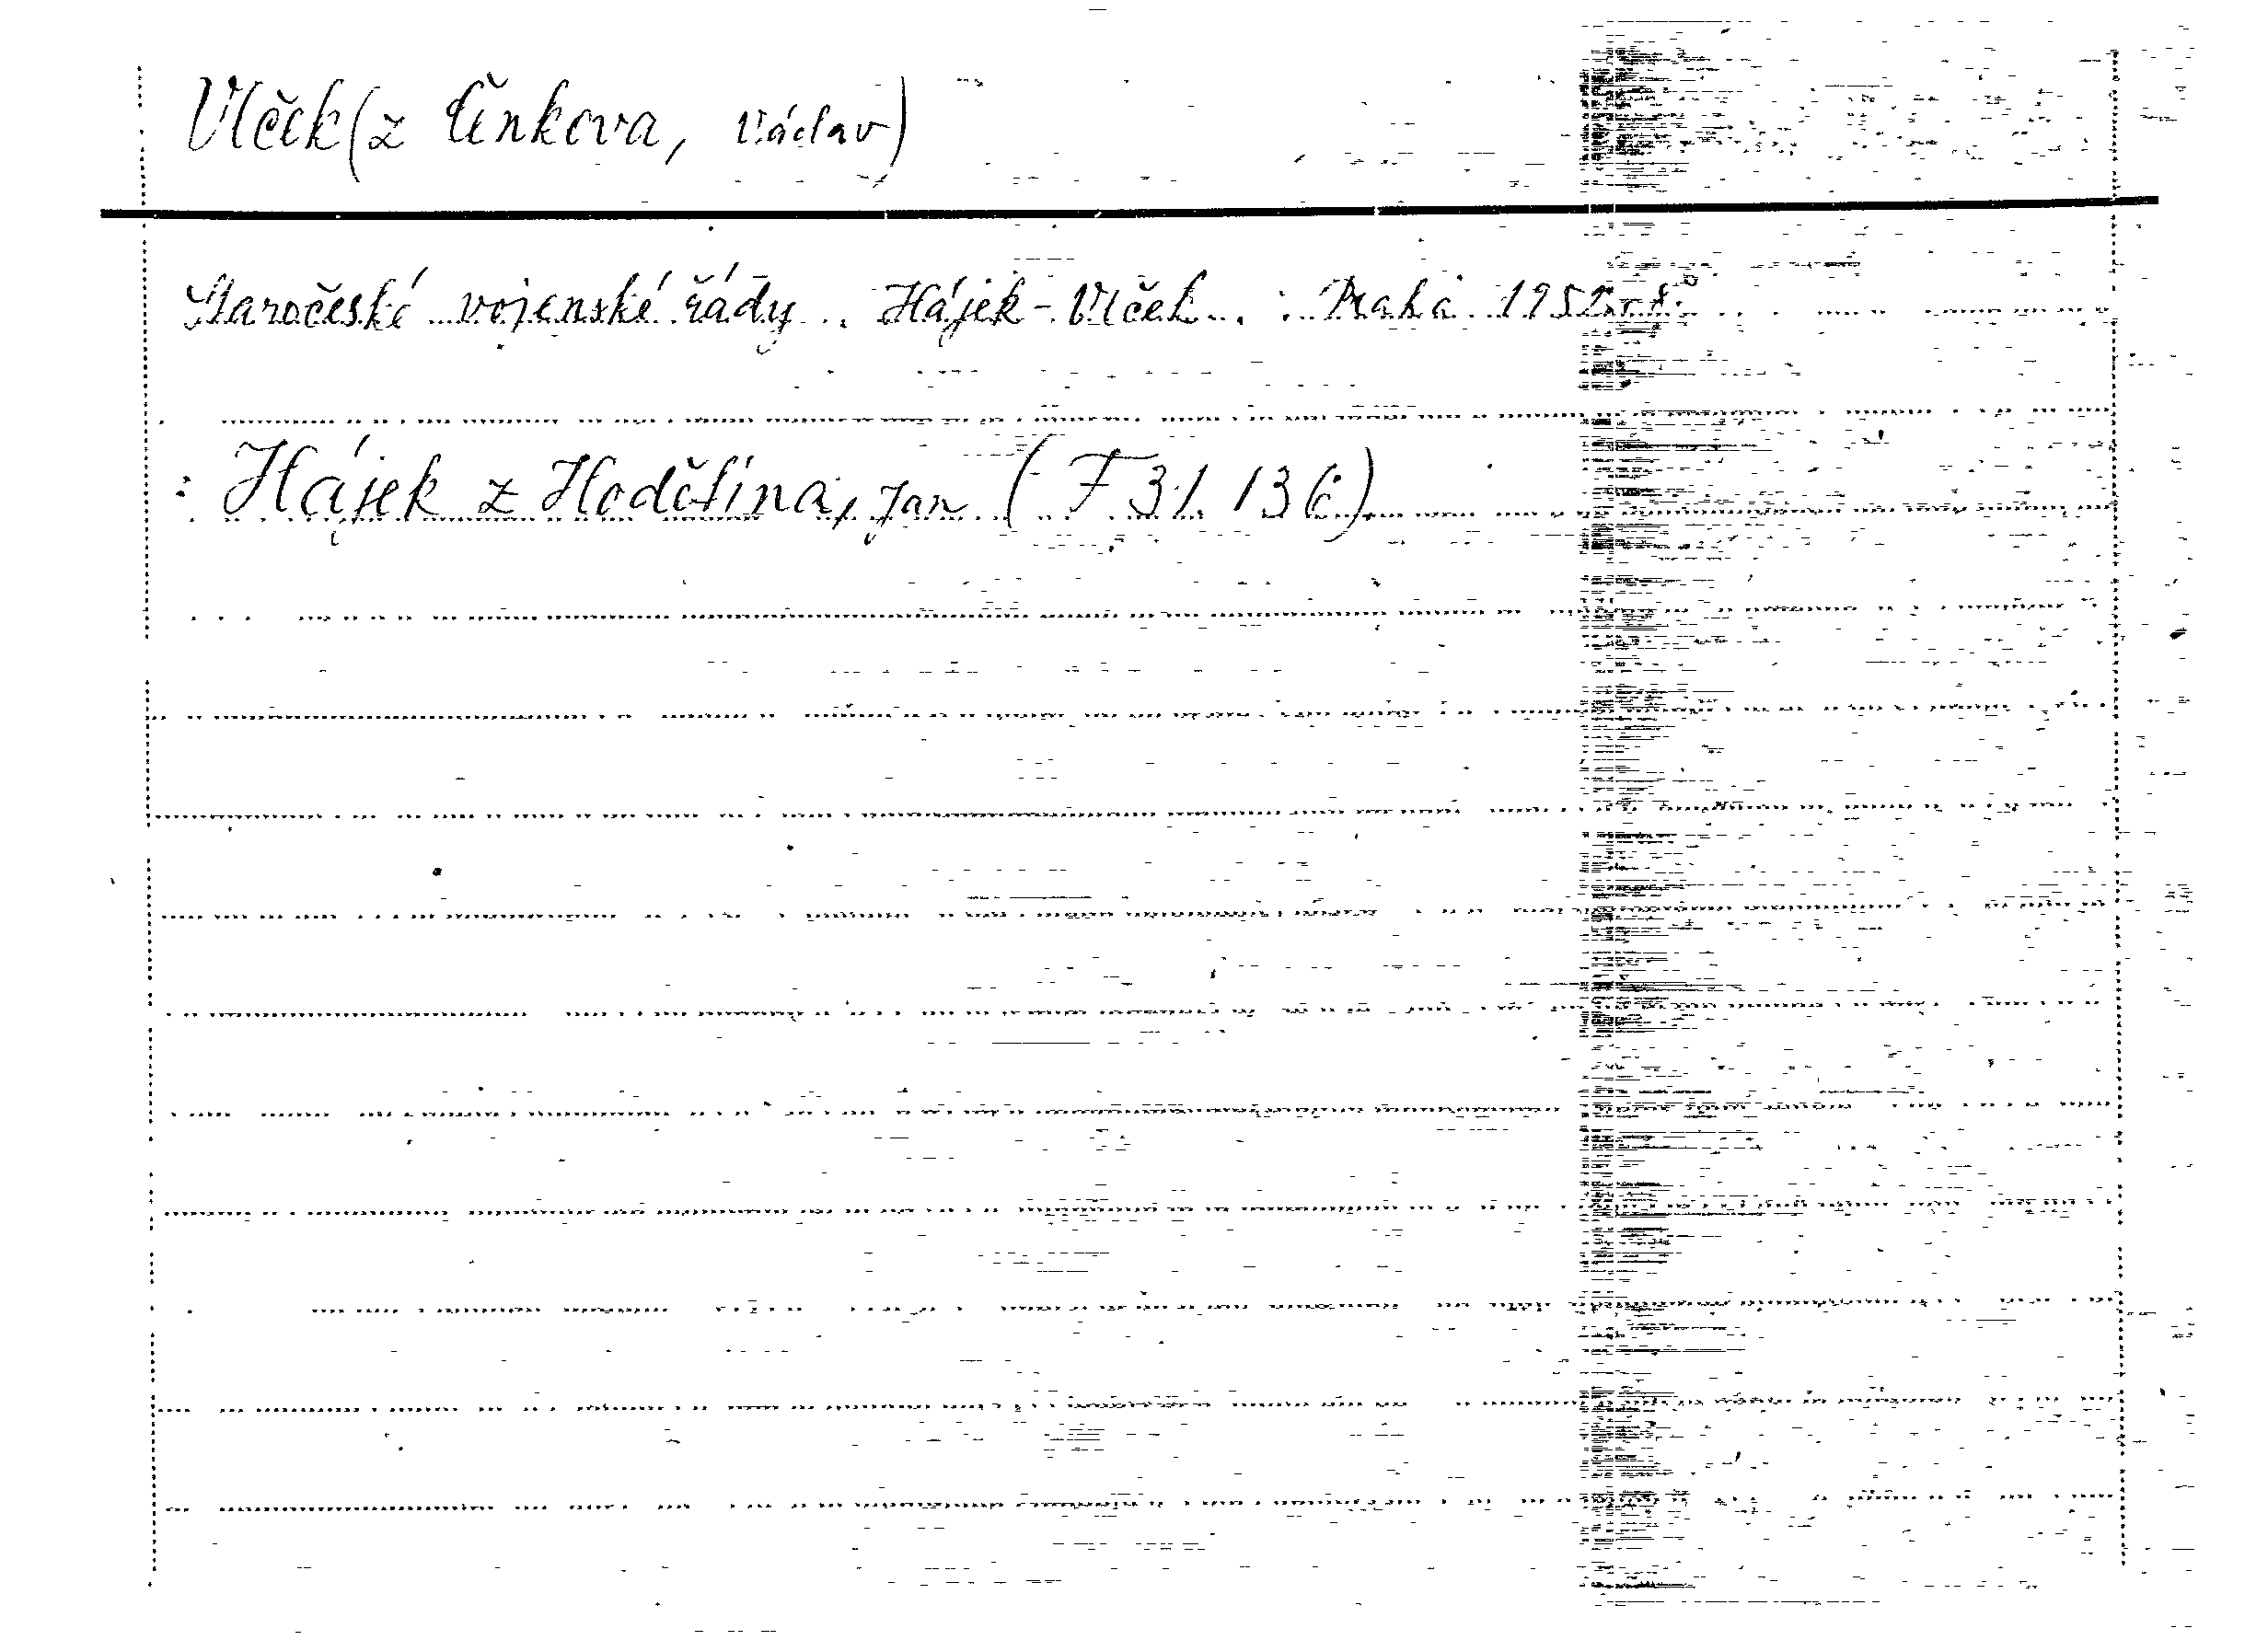 Vlček (z Činkova, Václav)
Staročeské vojenské řády. Hájek-Vlček. : Praha 1952. 8°
: Hájek z Hodětína, Jan (F 31.136)